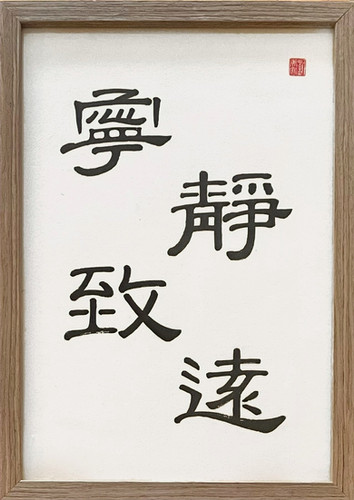 寧
靜
致
遠